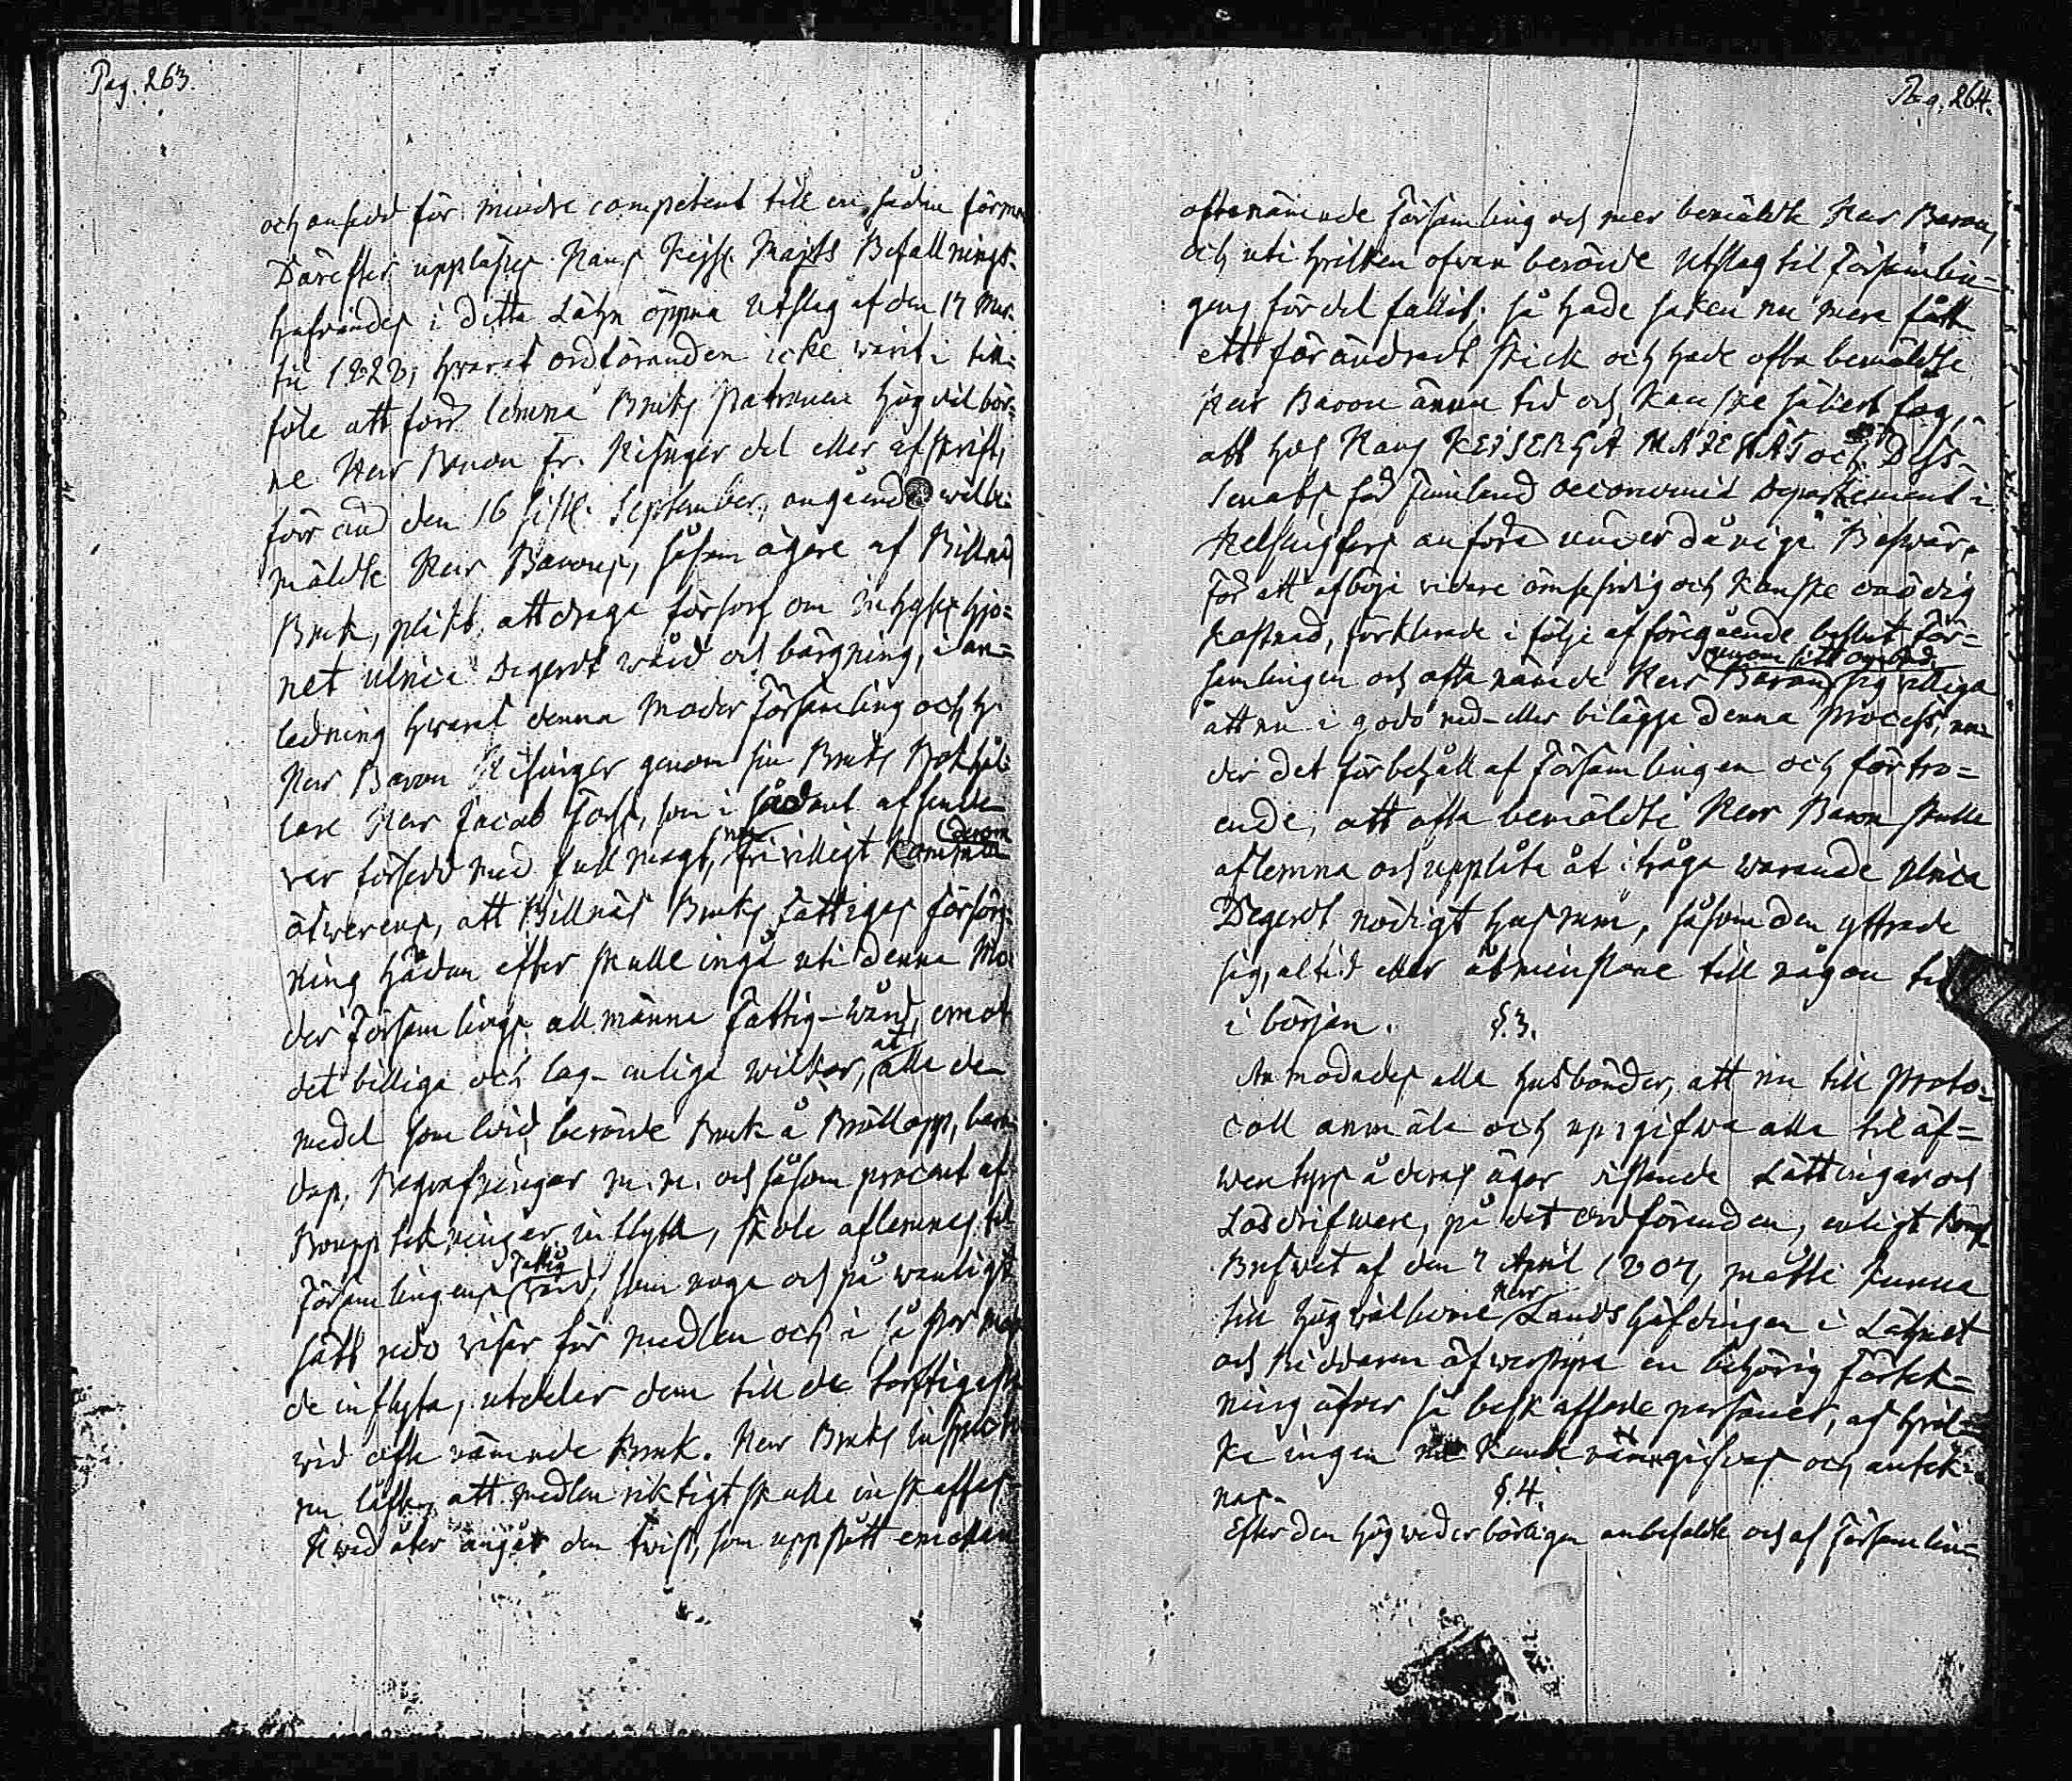 Pag. 263.
och ansedd för mindre competent till en sådan förmon
Därefter upplästes Hans Kejs. Majts Befallnings-
hafvandes i detta Lähn öppna Utslag af den 17 Mar-
tii 1828, hvaraf ordföranden icke warit i till-
fälle att förr lemna Bruks Patronen Högvälbor-
ne Herr Baron Fr. Hisinger del eller afskrift,
förr än den 16 sistl. September, angående wälbe-
mäldte Herr Barons, såsom ägare af Billnäs
Bruk, plikt, att draga försorg om Inhyses hjo-
net Ulrica Degerdt wård och bärgning, i an-
ledning hwaraf denna Moder Församling och H.
Herr Baron Hisinger genom sin Bruks Bokhål-
lare Herr Jacob Forss, som i sådant afseende
var försedd med fullmagt, nu frivilligt kommo derom
öfwerens, att Billnäs Bruks Fattigas försörj-
ning hädan efter skulle ingå uti denna Mo-
der Församlings allmänna Fattig-Wård, emot
det billiga och lag-enliga wilkor, at alla de
medel som wid berörde Bruk å Bröllopp, barn-
dop, Begrafningar m.m. och såsom procent af
Boupptekningar inflyta, skole aflemnas til
Församlingens Fattig wård, som noga och på wanligt
sätt redo visar för medlen och i så stor mån
de inflyta, utdelar dem till de torftigaste
wid ofta nämnde Bruk. Herr Bruks Inspectoren
nu läfte, att medlen riktigt skulle inskaffas.
Hwad åter angår den twist, som uppstått emellan
Pag. 264.
oftanämnde Församling och mer bemäldte Herr Baron,
och uti hvilken ofwan berörde Utslag til Församlin-
gens fördel fallit; så hade saken nu mera fått
ett förändradt skick och hade ofta bemäldte
Herr Baron ännu tid och kanske säkert fog,
att hos Hans KEJSERLIGA MAJESTÄT och Dess
Senats för Finland oeconomie Departement i
Helsingfors anföra underdåniga Beswär.
För att afböja vidare ömsesidig och kanske onödig
kostnad, förklarade i följe af föregående beslut För-
samlingen och ofta nämnde Herr Baron genom sitt ombud sig villiga
att nu i godo ned- eller bilägga denna Process, un-
der det förbehåll af Församlingen och förtro-
ende, att ofta bemäldte Herr Baron skulle
aflemna och upplåta åt i fråga warande Ulrica
Degerdt nödigt husrum, såsom den yttrade
sig, altid eller åtminstone till någon tid
i början.
§.3.
Anmodades alla husbönder, att nu till Proto-
coll anmäla och uppgifwa alla til äf-
wentyrs å deras ägor sittande Lättingar och
Lösdrifware, på det ordföranden, enligt Kongl.
Brefwet af den 7 April 1807, måtte kunna
till Högwälborne Herr Landshöfdingen i Lähnet
och Riddaren öfwerstyra en behörig förtek-
ning öfwer så beskaffade personer, af hwil-
ka ingen kunde nämngifvas och antek-
nas.
§.4.
Efter den högwederbörligen anbefaldte och af Församlin-